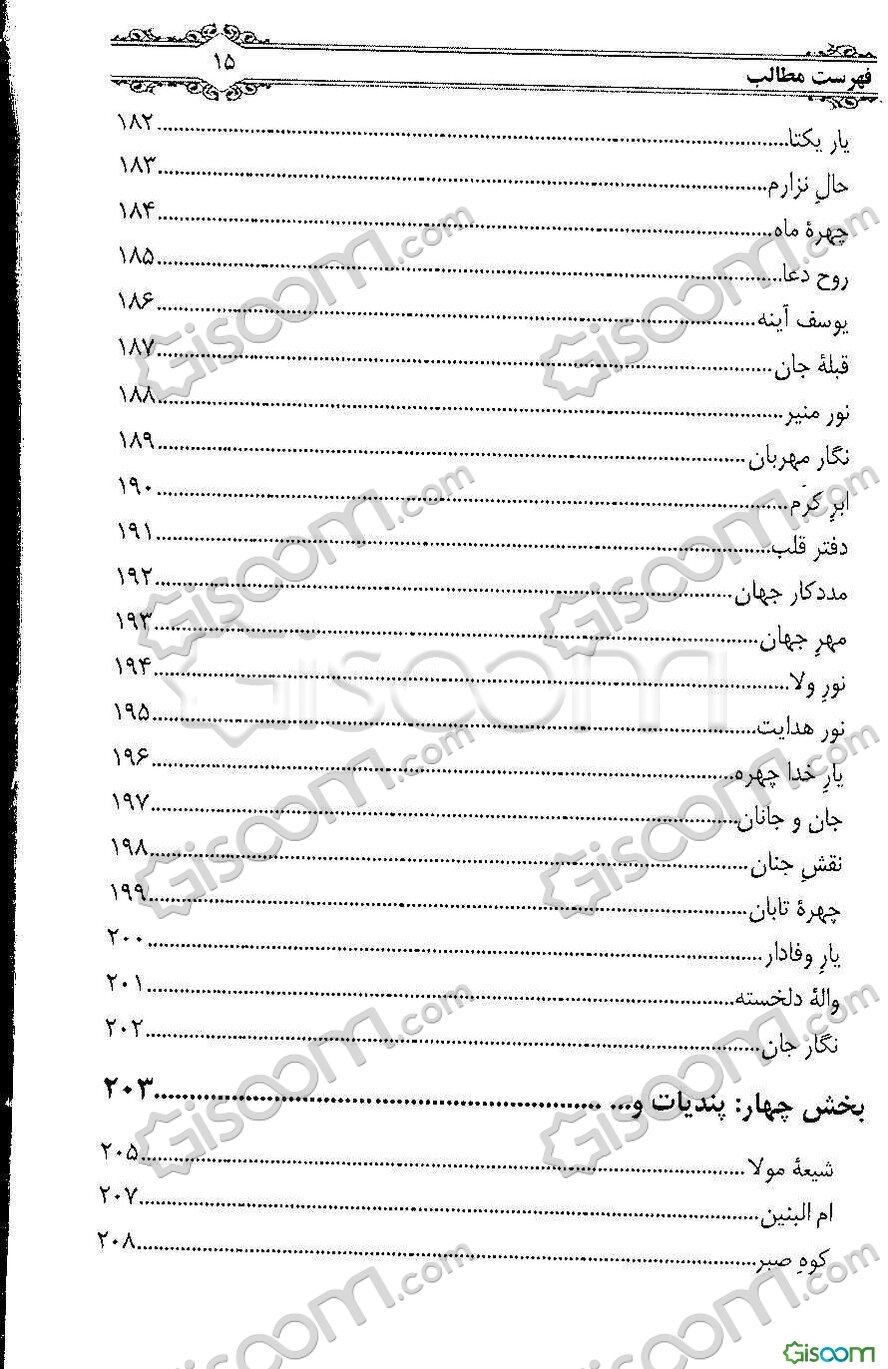 فهرست مطالب ۱۵
یار یکتا ۱۸۲
حالِ نزارم ۱۸۳
چهرهٔ ماه ۱۸۴
روح دعا ۱۸۵
یوسف آینه ۱۸۶
قبلهٔ جان ۱۸۷
نور منیر ۱۸۸
نگار مهربان ۱۸۹
ابرِ کَرَم ۱۹۰
دفتر قلب ۱۹۱
مددکار جهان ۱۹۲
مهرِ جهان ۱۹۳
نورِ ولا ۱۹۴
نور هدایت ۱۹۵
یارِ خدا چهره ۱۹۶
جان و جانان ۱۹۷
نقشِ جنان ۱۹۸
چهرهٔ تابان ۱۹۹
یارِ وفادار ۲۰۰
والهٔ دلخسته ۲۰۱
نگار جان ۲۰۲
بخش چهار: پندیات و... ۲۰۳
شیعهٔ مولا ۲۰۵
ام البنین ۲۰۷
کوهِ صبر ۲۰۸
Gisoom.com
Gisoom.com
Gisoom.com
Gisoom.com
Gisoom
Gisoom.com
Gisoom.com
Gisoom.com
Gisoom.com
Gisoom.com
Gisoom.com
Gisoom